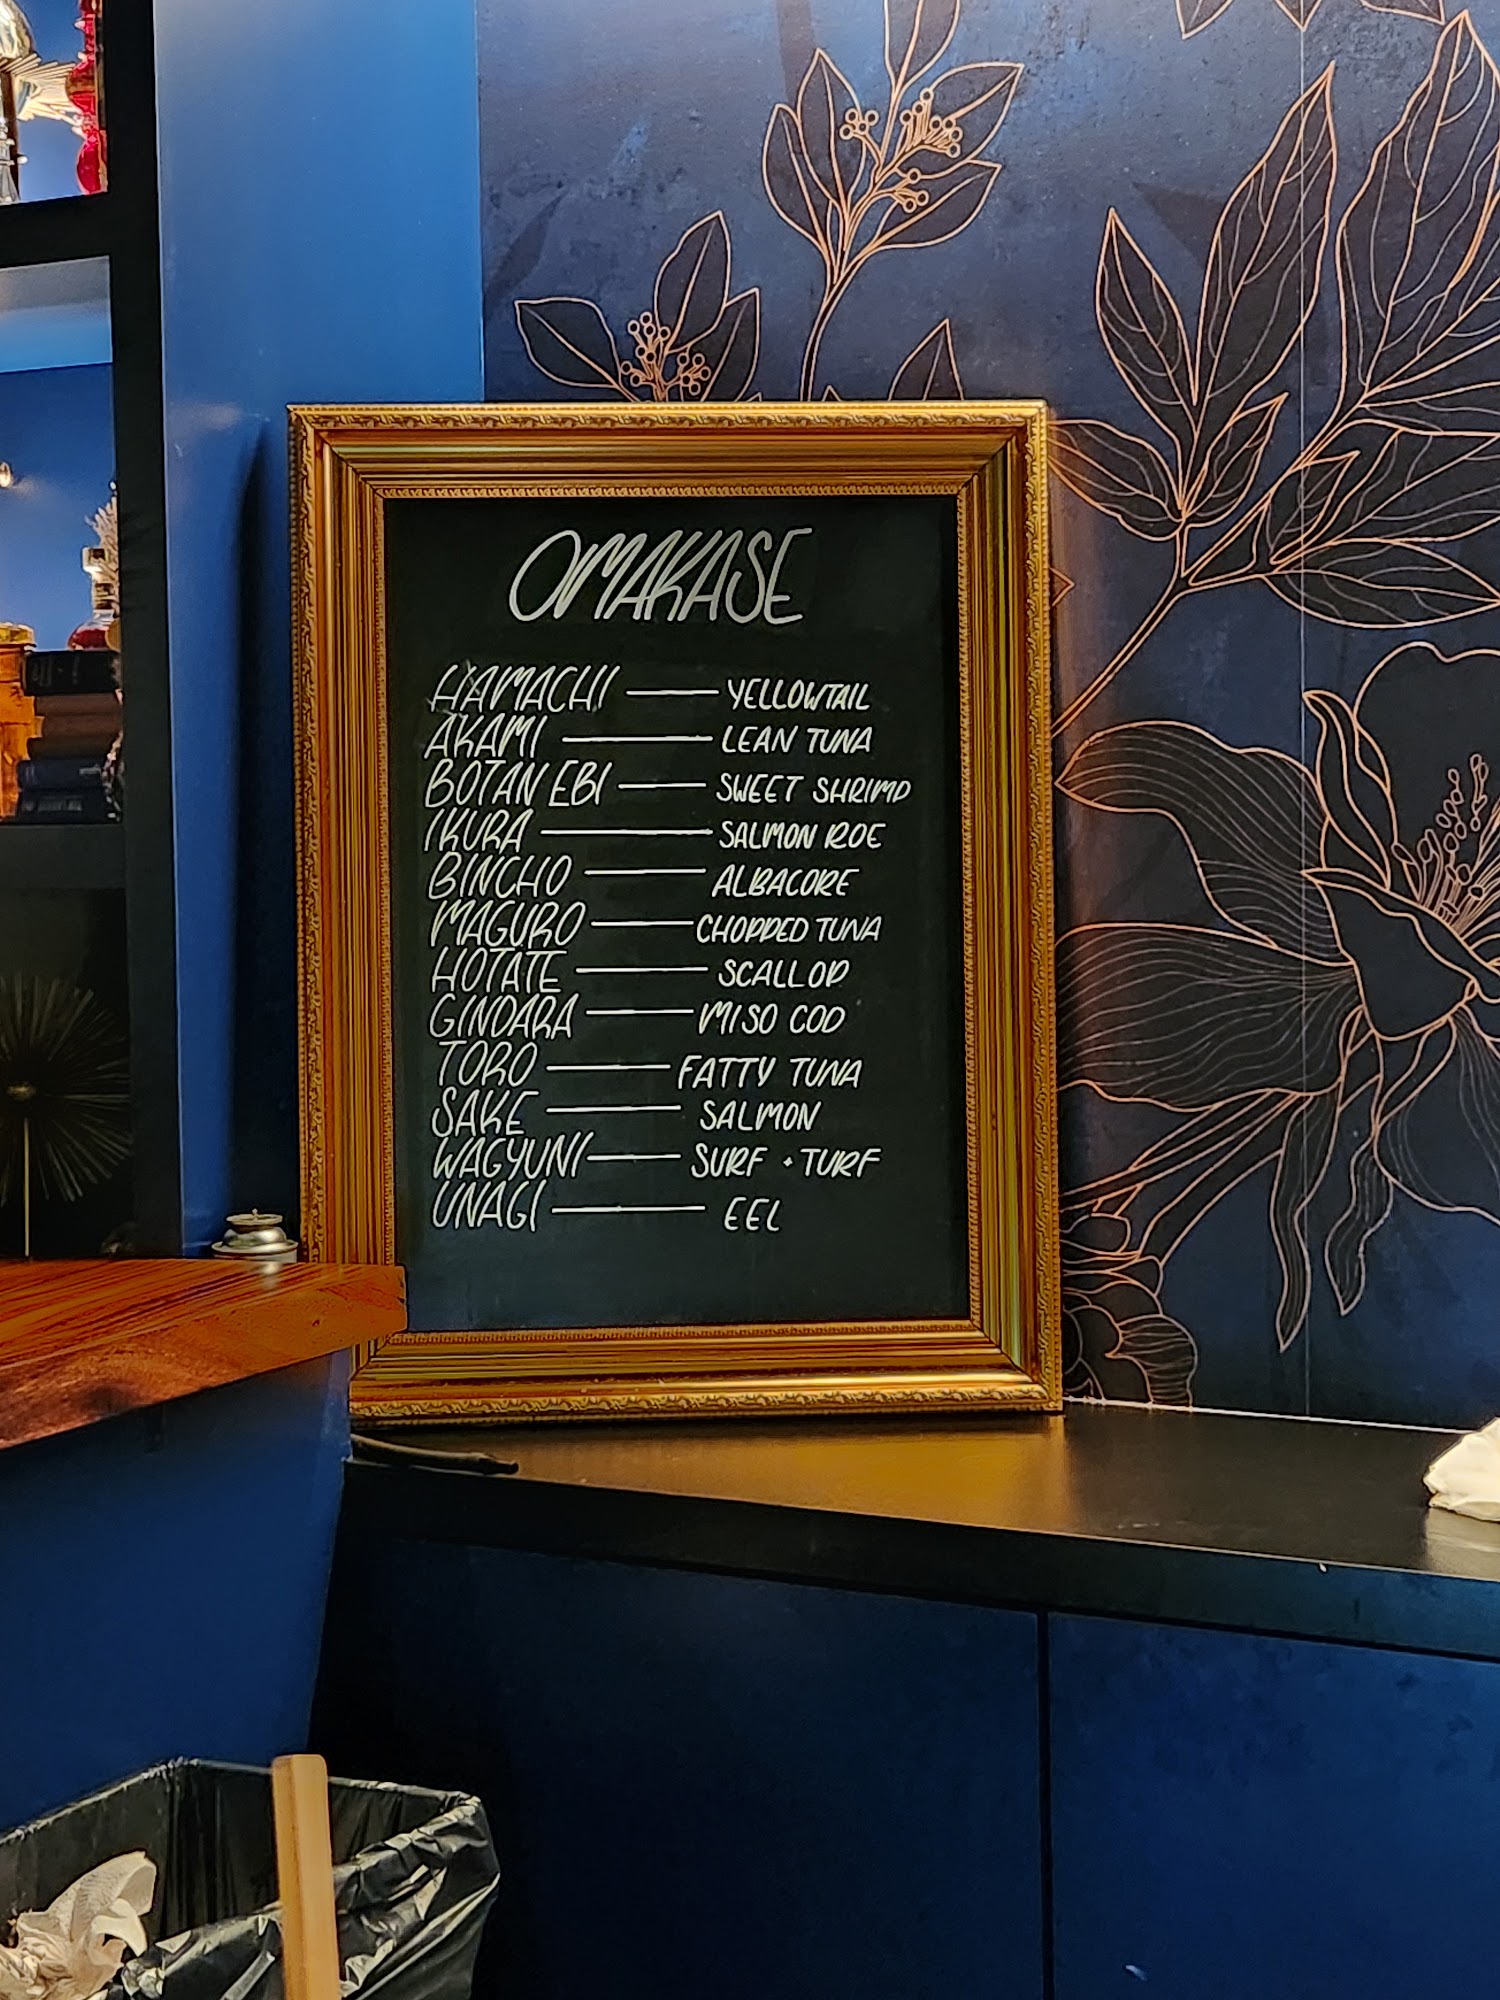 OMAKASE
HAMACHI — YELLOWTAIL
AKAMI — LEAN TUNA
BOTAN EBI — SWEET SHRIMP
IKURA — SALMON ROE
BINCHO — ALBACORE
MAGURO — CHOPPED TUNA
HOTATE — SCALLOP
GINDARA — MISO COD
TORO — FATTY TUNA
SAKE — SALMON
WAGYUNI — SURF + TURF
UNAGI — EEL